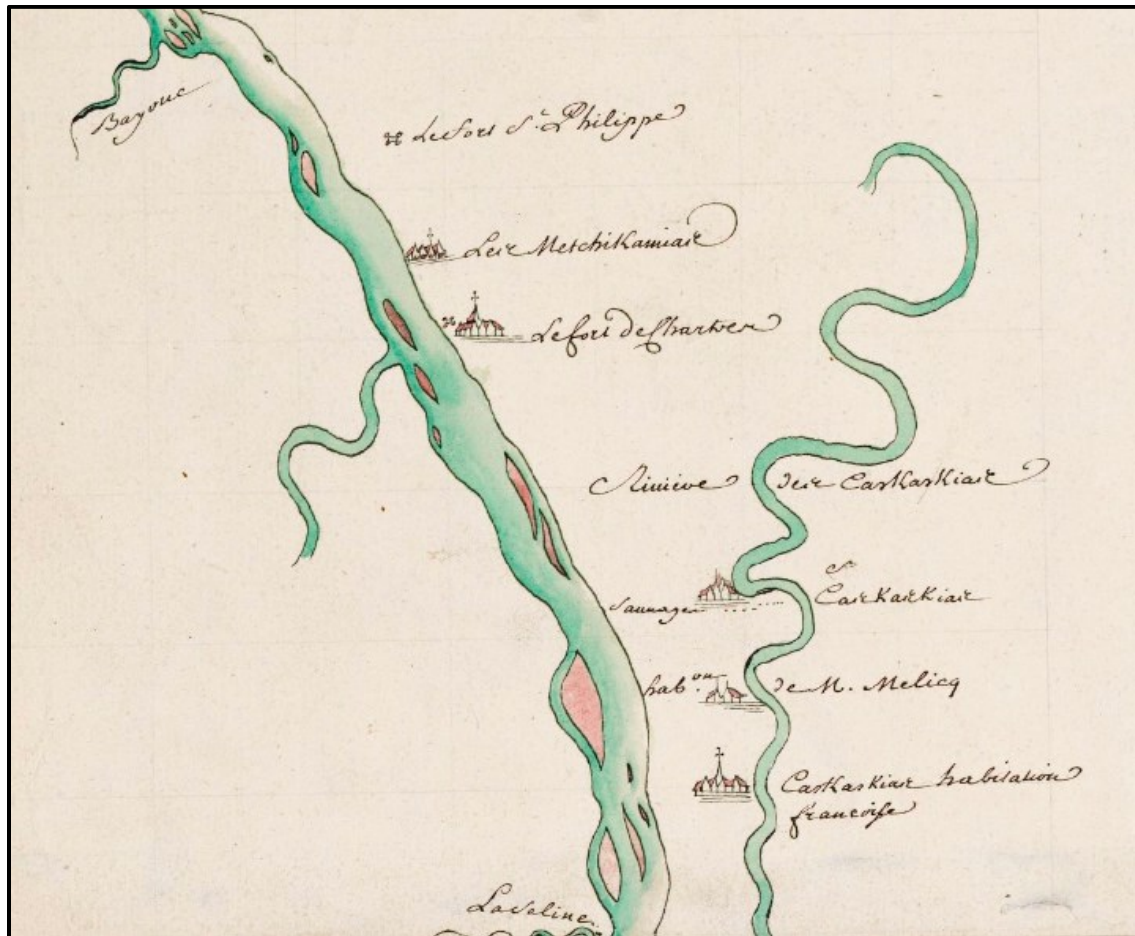 Bayouc
Le fort St. Philippe
Les Metchikamias
Le fort de Chartres
Riviere des CasKasKias
sauvages CasKasKias
habon. de M. Melicq
CasKasKias habitation
francoise
La Saline